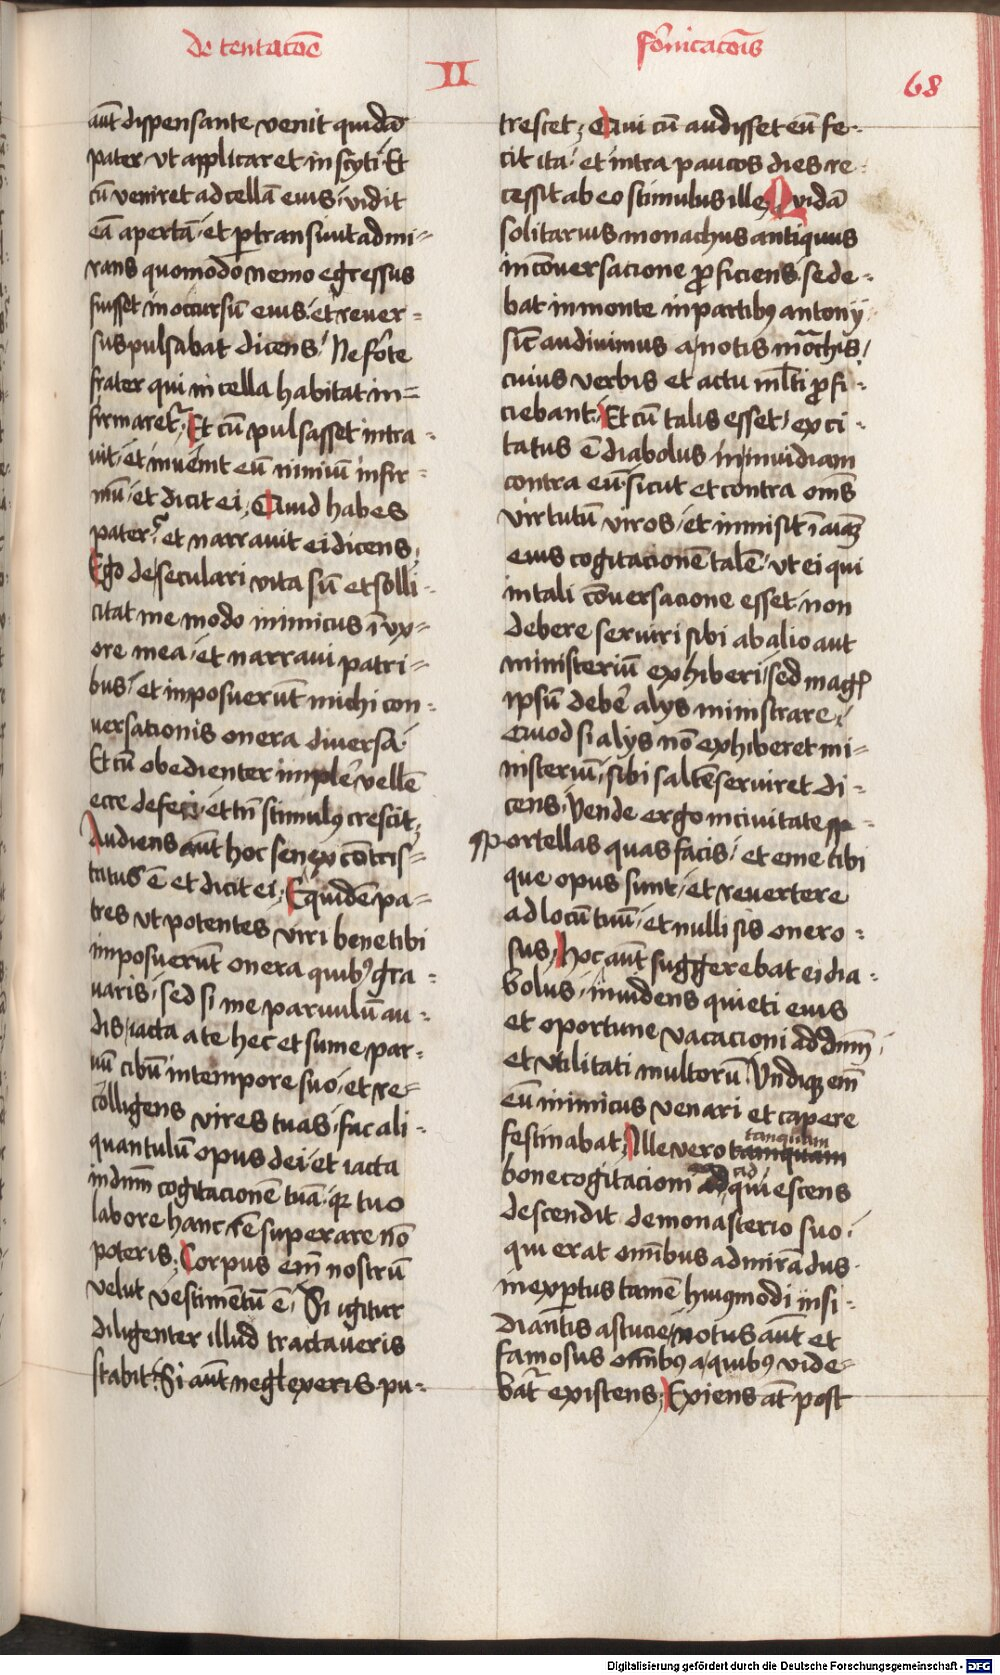 de tentacōe
fornicacōis
II
68
aūt dispensante venit quidā
pater vt applicaret in scyti Et
cū veniret ad cellā eius vidit
eā apertā et ꝑtransiuit admi-
rans quomodo nemo egressus
fuisset in occursū eius et reuer-
sus pulsabat dicens Ne forte
frater qui in cella habitat in-
firmaret᷑ Et cū pulsasset intra-
uit et inuenit eū nimiū infir-
mū et dicit ei Quid habes
pater et narrauit ei dicens
Ego de seculari vita sū et solli-
citat me modo inimicus ī vx-
ore mea et narraui patri-
bus et imposuerūt michi con-
versationis onera diversa
Et cū obedienter implere vellē
ecce defeci et tn̄ stimulꝰ crescit
Audiens aūt hoc senex cōtris-
titus ē et dicit ei Equidē pa-
tres vt potentes viri bene tibi
imposuerūt onera quibꝰ gra-
uaris sed si me paruulū au-
dis iacta a te hec et sume par-
vū cibū in tempore suo et re-
colligens vires tuas fac ali-
quantulū opus dei et iacta
in dn̄m cogitacionē tuā qr tuo
labore hanc rē superare nō
poteris Corpus em̄ nostrū
velut vestimētū ē Si igitur
diligenter illud tractaueris
stabit Si aūt neglexeris pu-
trescet Qui cū audisset eū fe-
cit ita et intra paucos dies re-
cessit ab eo stimulus ille Quidā
solitarius monachus antiquus
in cōuersacione ꝓficiens sede-
bat in monte in partibꝰ antonij
sic̄ audiuimus a notis mōchis
cuius verbis et actu ml̄ti ꝓfi-
ciebant Et cū talis esset exci-
tatus ē diabolus in inuidiam
contra eū sicut et contra om̄s
virtutū viros et inmisit ī aīaꝫ
eius cogitacionē talē vt ei qui
in tali cōuersacione esset non
debere seruiri sibi ab alio aut
ministeriū exhiberi sed magꝭ
ipsū debē alijs ministrare
Quod si alijs nō exhiberet mi-
nisteriū sibi saltē serviret di-
cens Vende ergo in civitate sp
sportellas quas facis et eme tibi
que opus sunt et reuertere
ad locū tuū et nulli sis onero-
sus Hoc aūt suggerebat ei dia-
bolus inuidens quieti eius
et oportune vacacioni ad dn̄m
et vtilitati multorū Vndiqꝫ em̄
eū inimicus venari et capere
festinabat Ille vero tamquam
tanquam
bone cogitacioni ad quiescens
descendit de monasterio suo
qui erat omībus admirādus
inexꝑtus tamē huiꝰmodi insi-
diantis astucie notus aūt et
famosus om̄ibꝰ a quibꝰ vide-
bat᷑ existens Exiens at̄ post
Digitalisierung gefördert durch die Deutsche Forschungsgemeinschaft - DFG